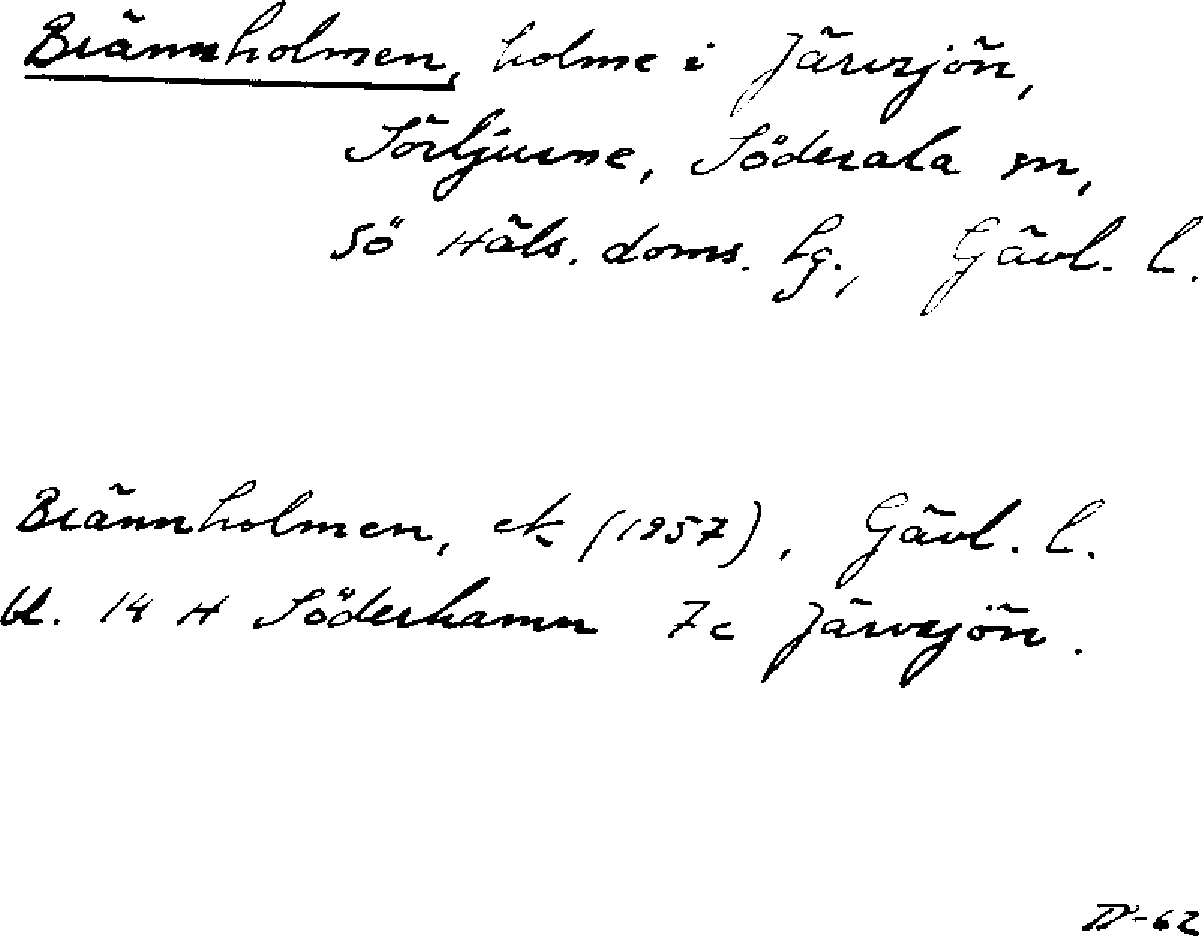 Brännholmen, holme i Järvsjön,
Sörljusne, Söderala sn,
sö Häls. doms. lg., Gävl. l.
Brännholmen, ek (1957), Gävl. l.
bl. 14 H Söderhamn 7c Järvsjön.
-62